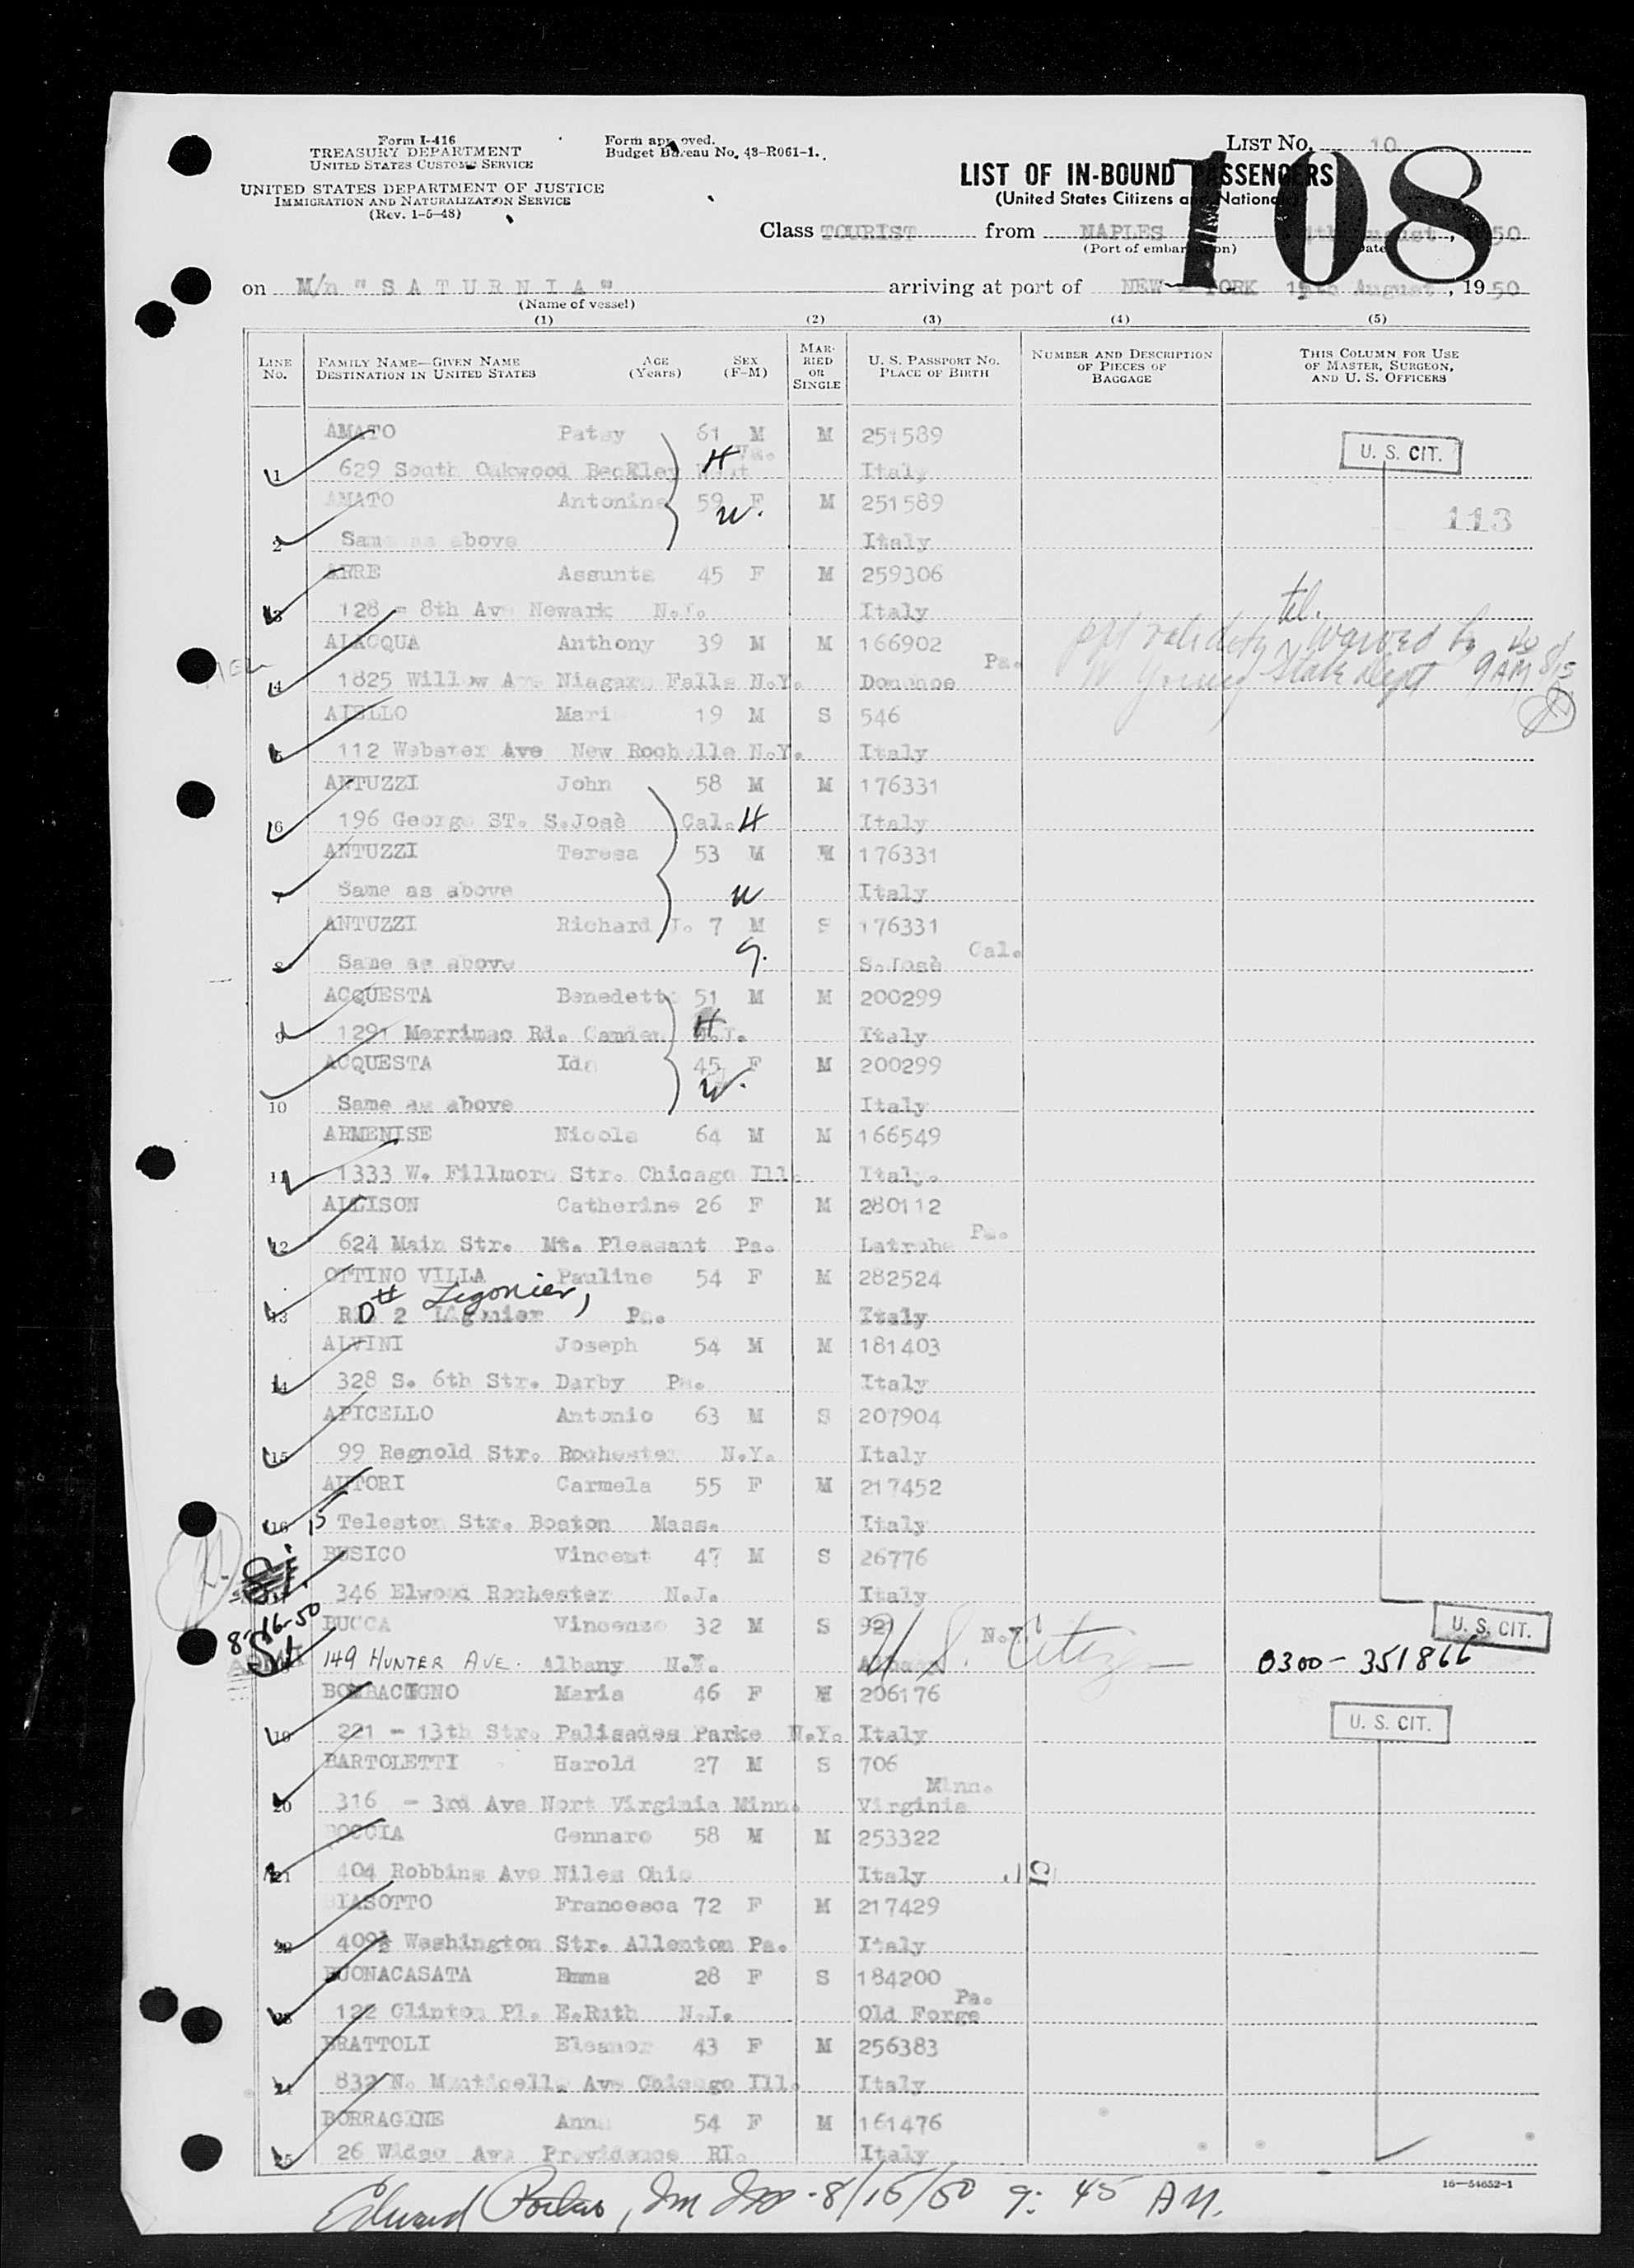 Form I-416
TREASURY DEPARTMENT
UNITED STATES CUSTOMS SERVICE
UNITED STATES DEPARTMENT OF JUSTICE
IMMIGRATION AND NATURALIZATION SERVICE
(Rev. 1-5-48)
Form approved.
Budget Bureau No. 43-R061-1.
LIST No. 10
108
LIST OF IN-BOUND PASSENGERS
(United States Citizens and Nationals)
Class TOURIST from NAPLES August, 1950
(Port of embarkation) (Date)
on M/n "SATURNIA" arriving at port of NEW YORK August, 1950
(Name of vessel)
(1) (2) (3) (4) (5)
LINE No. FAMILY NAME—GIVEN NAME DESTINATION IN UNITED STATES AGE (Years) SEX (F-M) MARRIED OR SINGLE U. S. PASSPORT No. PLACE OF BIRTH NUMBER AND DESCRIPTION OF PIECES OF BAGGAGE THIS COLUMN FOR USE OF MASTER, SURGEON, AND U. S. OFFICERS
AMATO Patsy 61 M M 251589
1 629 South Oakwood Beckley H Va. Italy U. S. CIT.
AMATO Antonina 59 F M 251589
W. 113
2 Same as above Italy
Assunta 45 F M 259306
3 128 - 8th Ave Newark Italy tel.
ALACQUA Anthony 39 M M 166902 ppt validity waived by
4 1825 Willow Ave Niagara Falls N.Y. Donohoe Pa. State Dept 9 AM 8/15
AIELLO 19 M S 546
5 112 Webster Ave New Rochelle N.Y. Italy
ANTUZZI John 58 M M 176331
6 196 George ST. S.Josè Cal. H Italy
ANTUZZI Teresa 53 M 176331
7 Same as above W Italy
ANTUZZI Richard J. 7 M S 176331
8 Same as above S.Josè Cal.
ACQUESTA Benedetto 51 M M 200299
9 1291 Merrimac Rd. Camden N.J. H Italy
ACQUESTA Ida 45 F M 200299
W.
10 Same as above Italy
ARMENISE Nicola 64 M M 166549
11 1333 W. Fillmore Str. Chicago Ill. Italy
ALLISON Catherine 26 F M 280112
12 624 Main Str. Mt. Pleasant Pa. Latrobe Pa.
OTTINO VILLA Pauline 54 F M 282524
13 RD # 2 Ligonier, Pa. Italy
ALVINI Joseph 54 M M 181403
14 328 S. 6th Str. Darby Pa. Italy
APICELLO Antonio 63 M S 207904
15 99 Regnold Str. Rochester N.Y. Italy
AUTORI Carmela 55 F M 217452
16 15 Teleston Str. Boston Mass. Italy
BUSICO Vincent 47 M S 26776
S.I. 346 Elwood Rochester N.J. Italy
8-16-50 BUCCA Vincenzo 32 M S 921 U. S. CIT.
149 HUNTER AVE. Albany N.Y. N.Y. U S. Citizen 0300-351866
BOMBACIGNO Maria 46 F 206176
19 221 - 13th Str. Palisades Parke N.Y. Italy U. S. CIT.
BARTOLETTI Harold 27 M S 706
20 316 - 3rd Ave Nort Virginia Minn. Virginia Minn.
BOCCIA Gennaro 58 M M 253322
21 404 Robbins Ave Niles Ohio Italy
BIASOTTO Francesca 72 F M 217429
22 409½ Washington Str. Allenton Pa. Italy
BUONACASATA Emma 28 F S 184200
23 122 Clinton Pl. E.Ruth N.J. Old Forge Pa.
BRATTOLI Eleanor 43 F M 256383
24 832 N. Monticello Ave Chicago Ill. Italy
BORRAGINE Anna 54 F M 161476
25 26 Ave Providence RI. Italy
16—54652-1
Edward 8/15/50 9:45 AM.